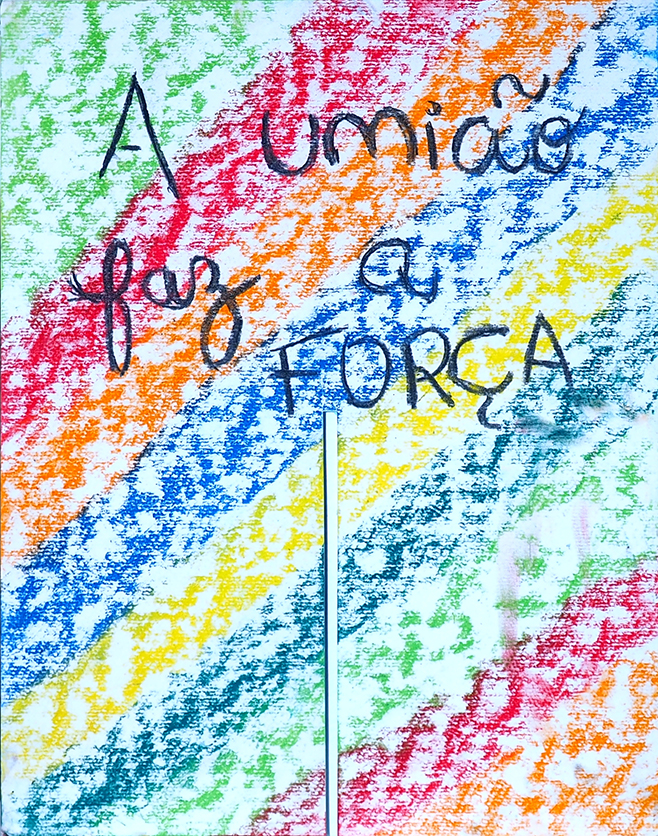 A umião
faz a
FORÇA